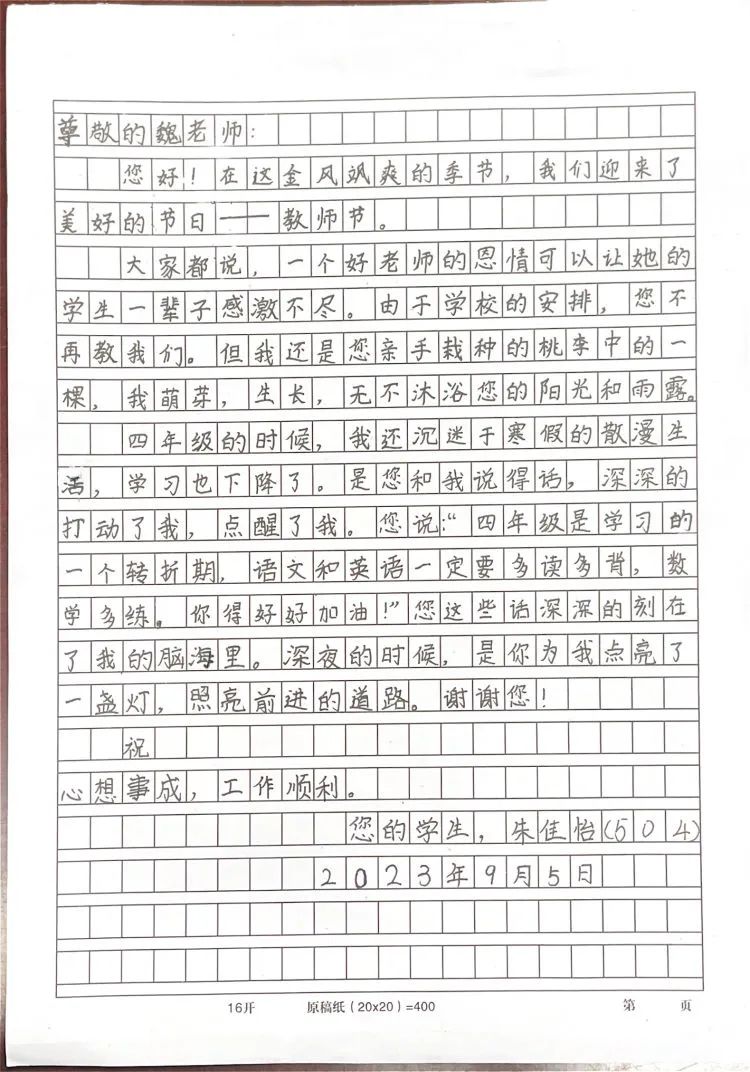 尊敬的魏老师：
您好！在这金风飒爽的季节，我们迎来了
美好的节日——教师节。
大家都说，一个好老师的恩情可以让她的
学生一辈子感激不尽。由于学校的安排，您不
再教我们。但我还是您亲手栽种的桃李中的一
棵，我萌芽，生长，无不沐浴您的阳光和雨露。
四年级的时候，我还沉迷于寒假的散漫生
活，学习也下降了。是您和我说得话，深深的
打动了我，点醒了我。您说：“四年级是学习的
一个转折期，语文和英语一定要多读多背，数
学多练。你得好好加油！”您这些话深深的刻在
了我的脑海里。深夜的时候，是你为我点亮了
一盏灯，照亮前进的道路。谢谢您！
祝
心想事成，工作顺利。
您的学生，朱佳怡(504)
2023年9月5日
16开 原稿纸（20x20）=400 第 页